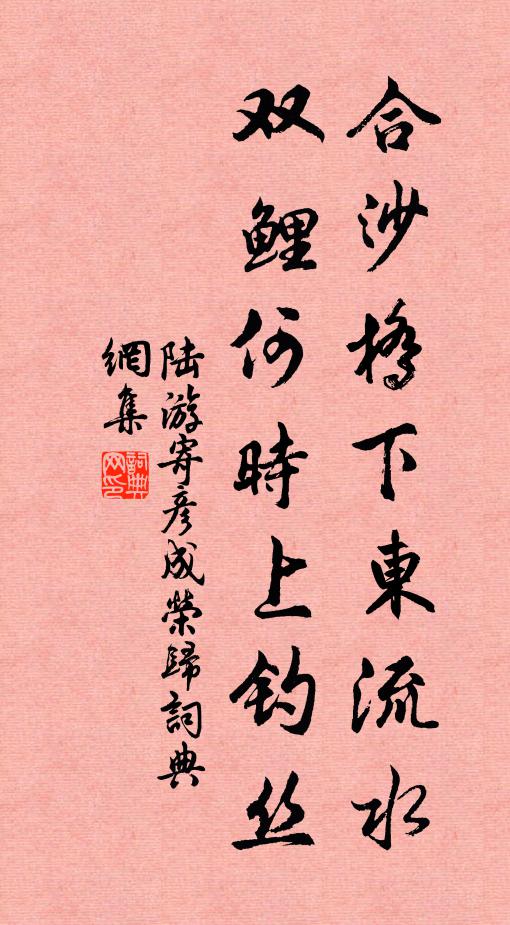 合沙橋下東流水
双鲤何時上钓丝
陆游寄彦成榮歸詞典
網集
詞典网印